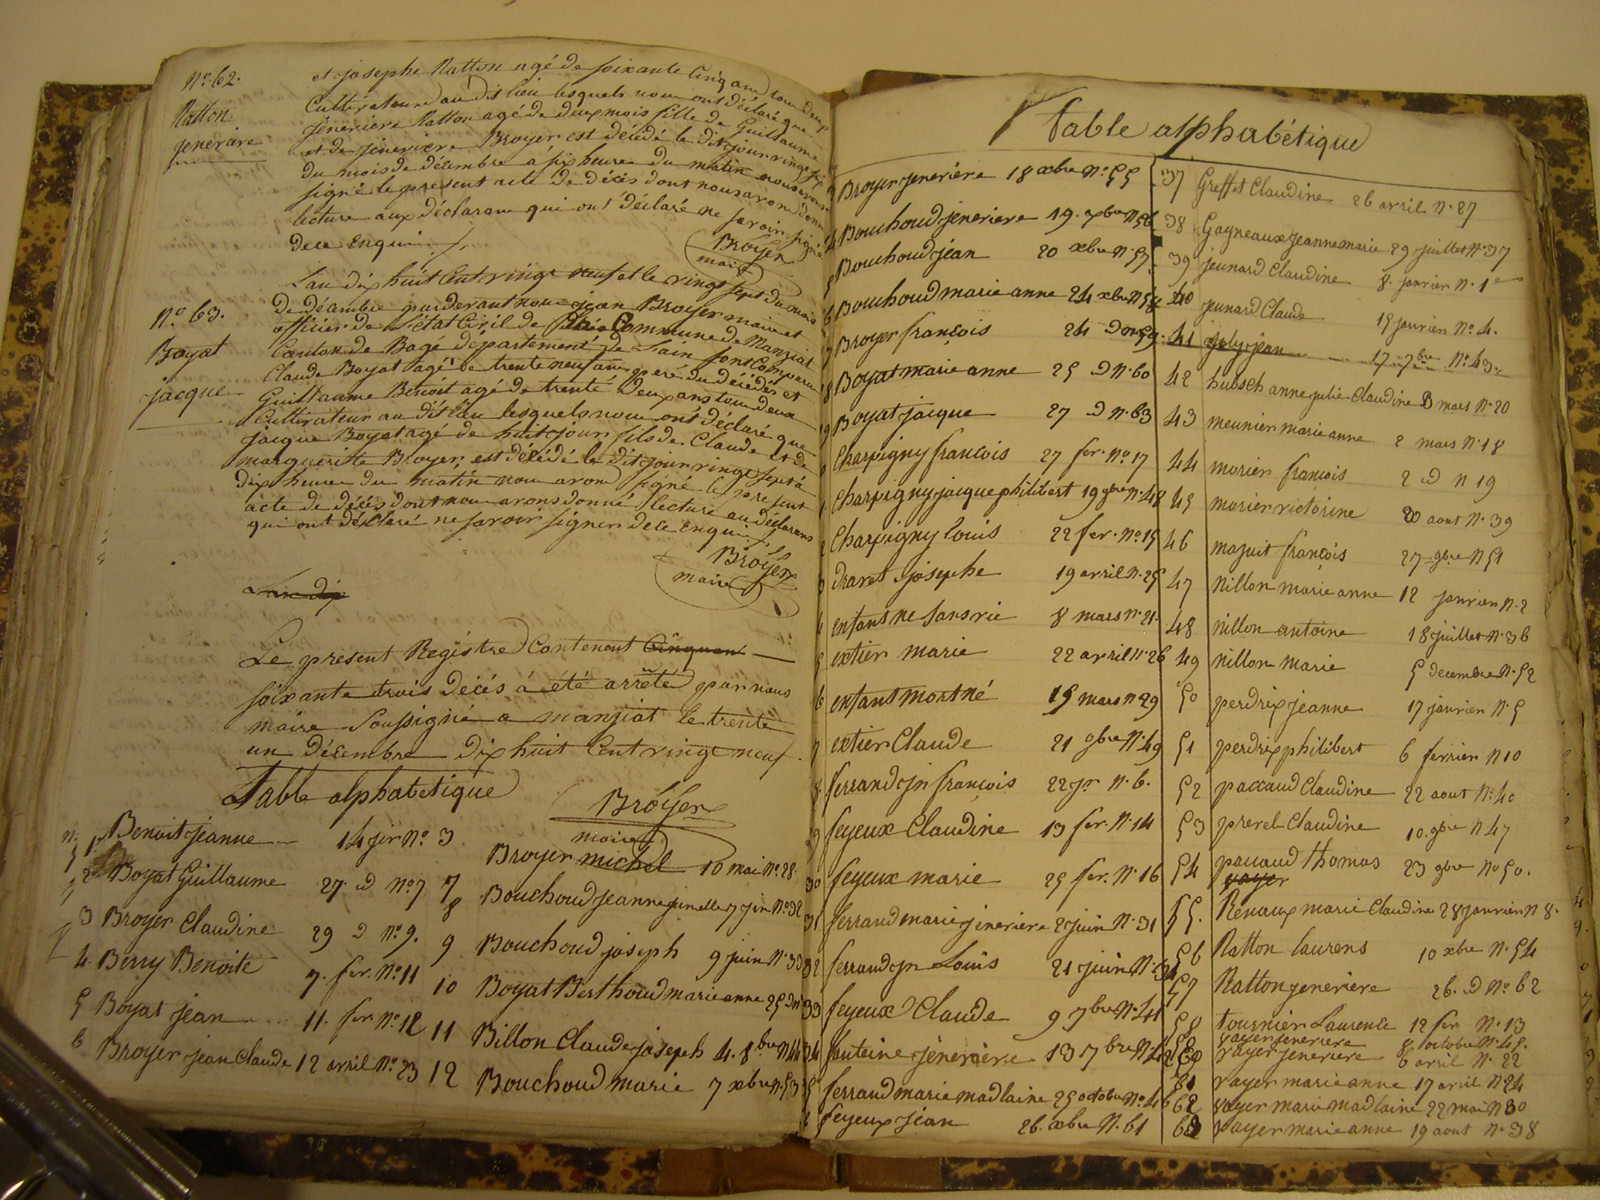 No. 62.
Natton
jeneriere
et josephe Natton agé de soixante Cinq ans tous deux
Cultivateurs au dit lieu lesquels nous ont déclaré que
jeneriere Natton agé de deux mois fille de Guillaume
et de jeneriere Broyer est décédé le dit jour vingt six
du mois de décembre à six heure du matin nous avons
signé le present acte de décès dont nous avons donné
lecture aux déclarans qui ont déclaré ne savoir signé
de ce Enquis
Broyer
maire
No. 63.
Boyat
jacque
L'an dix huit Cent vingt neuf et le vingt sept du mois
de décembre pardevant nous jean Broyer maire et
officier de l'état Civil de la Commune de Manziat
Canton de Bagé département de l'ain sont Comparu
Claude Boyat agé de trente neuf ans peré du décédés et
Guillaume Benoit agé de trente deux ans tous deux
Cultivateur au dit lieu lesquels nous ont déclaré que
jacque Boyat agé de huit jours fils de Claude et de
margueritte Broyer, est décédé le dit jour vingt sept à
dix heure du matin nous avons signé le present
acte de décès dont nous avons donné lecture au déclarans
qui ont déclaré ne savoir signer de ce Enquis
Broyer
maire
L'an dix
Le present Registre Contenant Cinquante
soixante trois décés à été arrêté par nous
maire soussigné a manziat le trente
un décembre dix huit Cent vingt neuf.
Table alphabétique
Broyer
maire
n. 1 Benoit jeanne 14 jer No. 3
2 Boyat Guillaume 27. d No. 7
3 Broyer Claudine 29 d No. 9.
4. Berry Benoite 7. fer. No. 11
5 Boyat jean 11. fer No. 12
6 Broyer jean Claude 12 avril No. 23
7 Broyer michel 10 mai No. 28
8 Bouchoud jeanne 7 jin No. 32
9 Bouchoud joseph 9 juin No. 33
10 Boyat Berthoud marie anne 25
11 Billon Claude joseph 4. 8bre N. 44
12 Bouchoud marie 7 xbre N. 53
Table alphabétique
Broyer jeneriere 18 xbre No. 55
Bouchoud jeneriere 19. xbre N. 56
Bouchoud jean 20 xbre N. 57
Bouchoud marie anne 24 xbre N. 58
Broyer françois 24 d No. 59
Boyat marie anne 25 d N. 60
Boyat jacque 27 d N. 63
Charpigny françois 27 fer. No. 17
Charpigny jacque philibert 19 gbre N. 48
Charpigny louis 22 fer. No. 15
dravet josephe 19 avril N. 25
enfant ne sans vie 8 mars N. 21
extier marie 22 avril N. 26
enfant mort né 15 mars N. 29
extier Claude 21 gbre N. 49
ferrand jn françois 22 jr N. 6.
feyeux Claudine 13 fer. N. 14
30 feyeux marie 25 fer. N. 16
31 ferrand marie jeneriere 2 juin N. 31
32 ferrand jn Louis 21 juin N. 34
33 feyeux Claude 9 7bre N. 41
34 fonteine jéneriere 13 7bre N. 42
35 ferrand marie madlaine 25 octobre No. 46
feyeux jean 26. xbre N. 61
37 Greffet Claudine 26 avril N. 27
38 Gayneaux jeanne marie 29 juillet N. 37
39 jeunard Claudine 8 janvier N. 1
40 junard Claude 15 janvier No. 4.
41 joly jean 17 7bre No. 43
42 hubsch anne julie Claudine 8 mars N. 20
43 meunier marie anne 2 mars N. 18
44 morier françois 2 d N 19
45 morier victorine 20 aout N. 39
46 mazuit françois 27 gbre N 51
47 Nillon marie anne 12 janvier N. 2
48 Nillon antoine 18 juillet N. 36
49 Nillon marie 5 decembre N. 52
50 perdrix jeanne 17 janvier N. 5
51 perdrix philibert 6 fevrier N 10
52 paccaud Claudine 22 aout N. 40
53 prerel Claudine 10. gbre N 47
54 paccaud thomas 23 gbre No 50.
vayer
55. Renaux marie Claudine 28 janvier N 8.
56 Natton laurens 10 xbre N. 54
57 Natton jeneriere 26. d No. 62
58 tournier Laurence 12 fer N. 13
59 vayer jeneriere 8 octobre N. 45.
60 vayer jeneriere 6 avril N. 22
61 vayer marie anne 17 avril N 24
62 vayer marie madlaine 22 mai N 30
63 vayer marie anne 19 aout N. 38